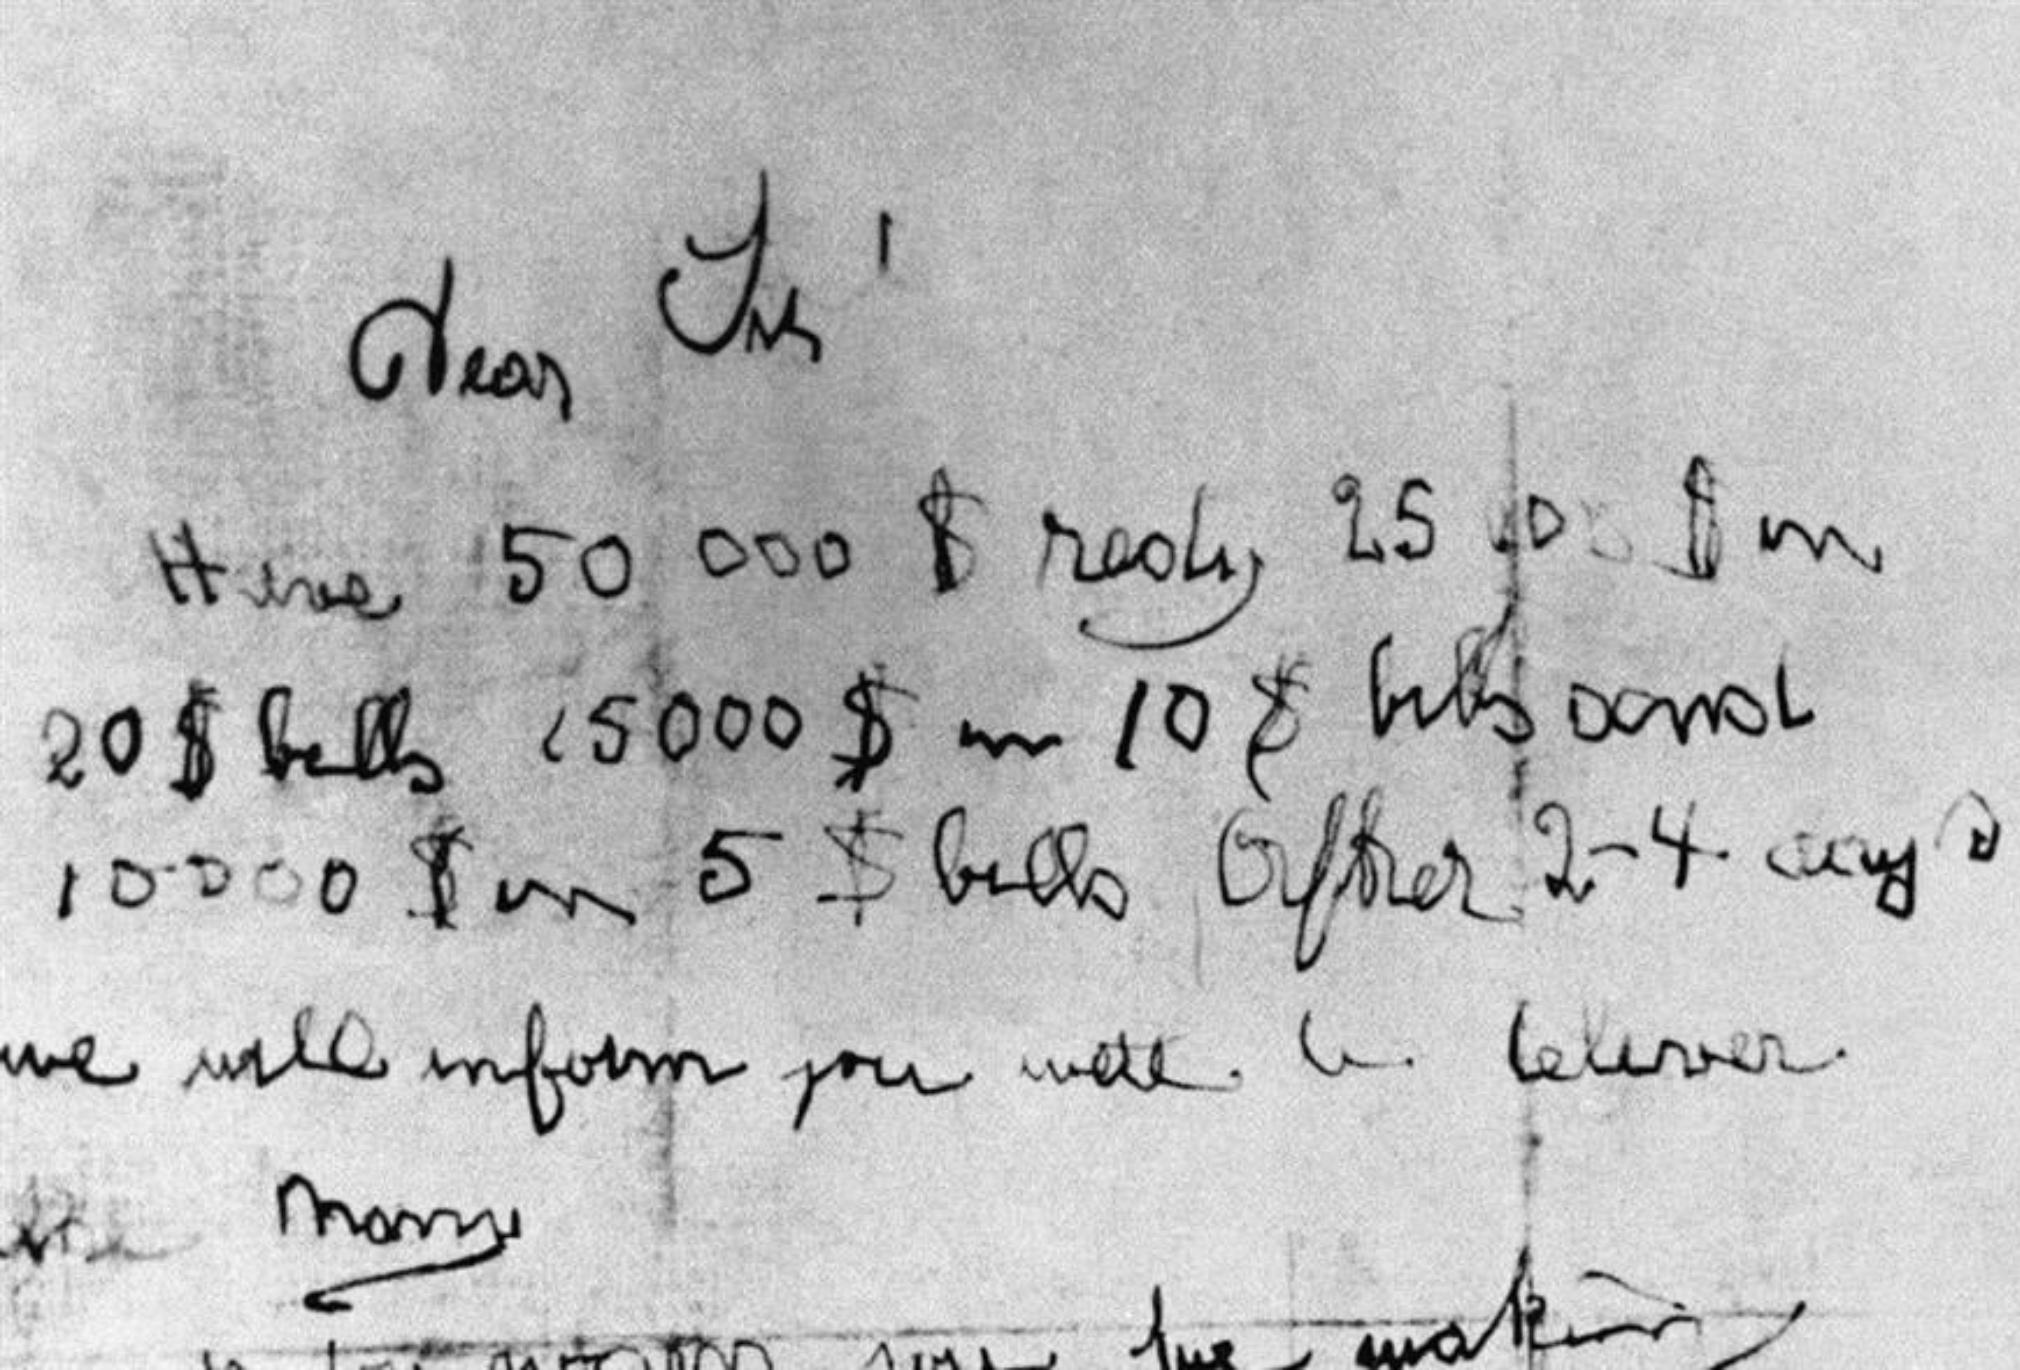 Dear Sir!
Have 50 000 $ redy 25 000 $ in
20 $ bills 15000 $ in 10 $ bills and
10000 $ in 5 $ bills After 2-4 days
we will inform you were to deliver
the Mony
you for making